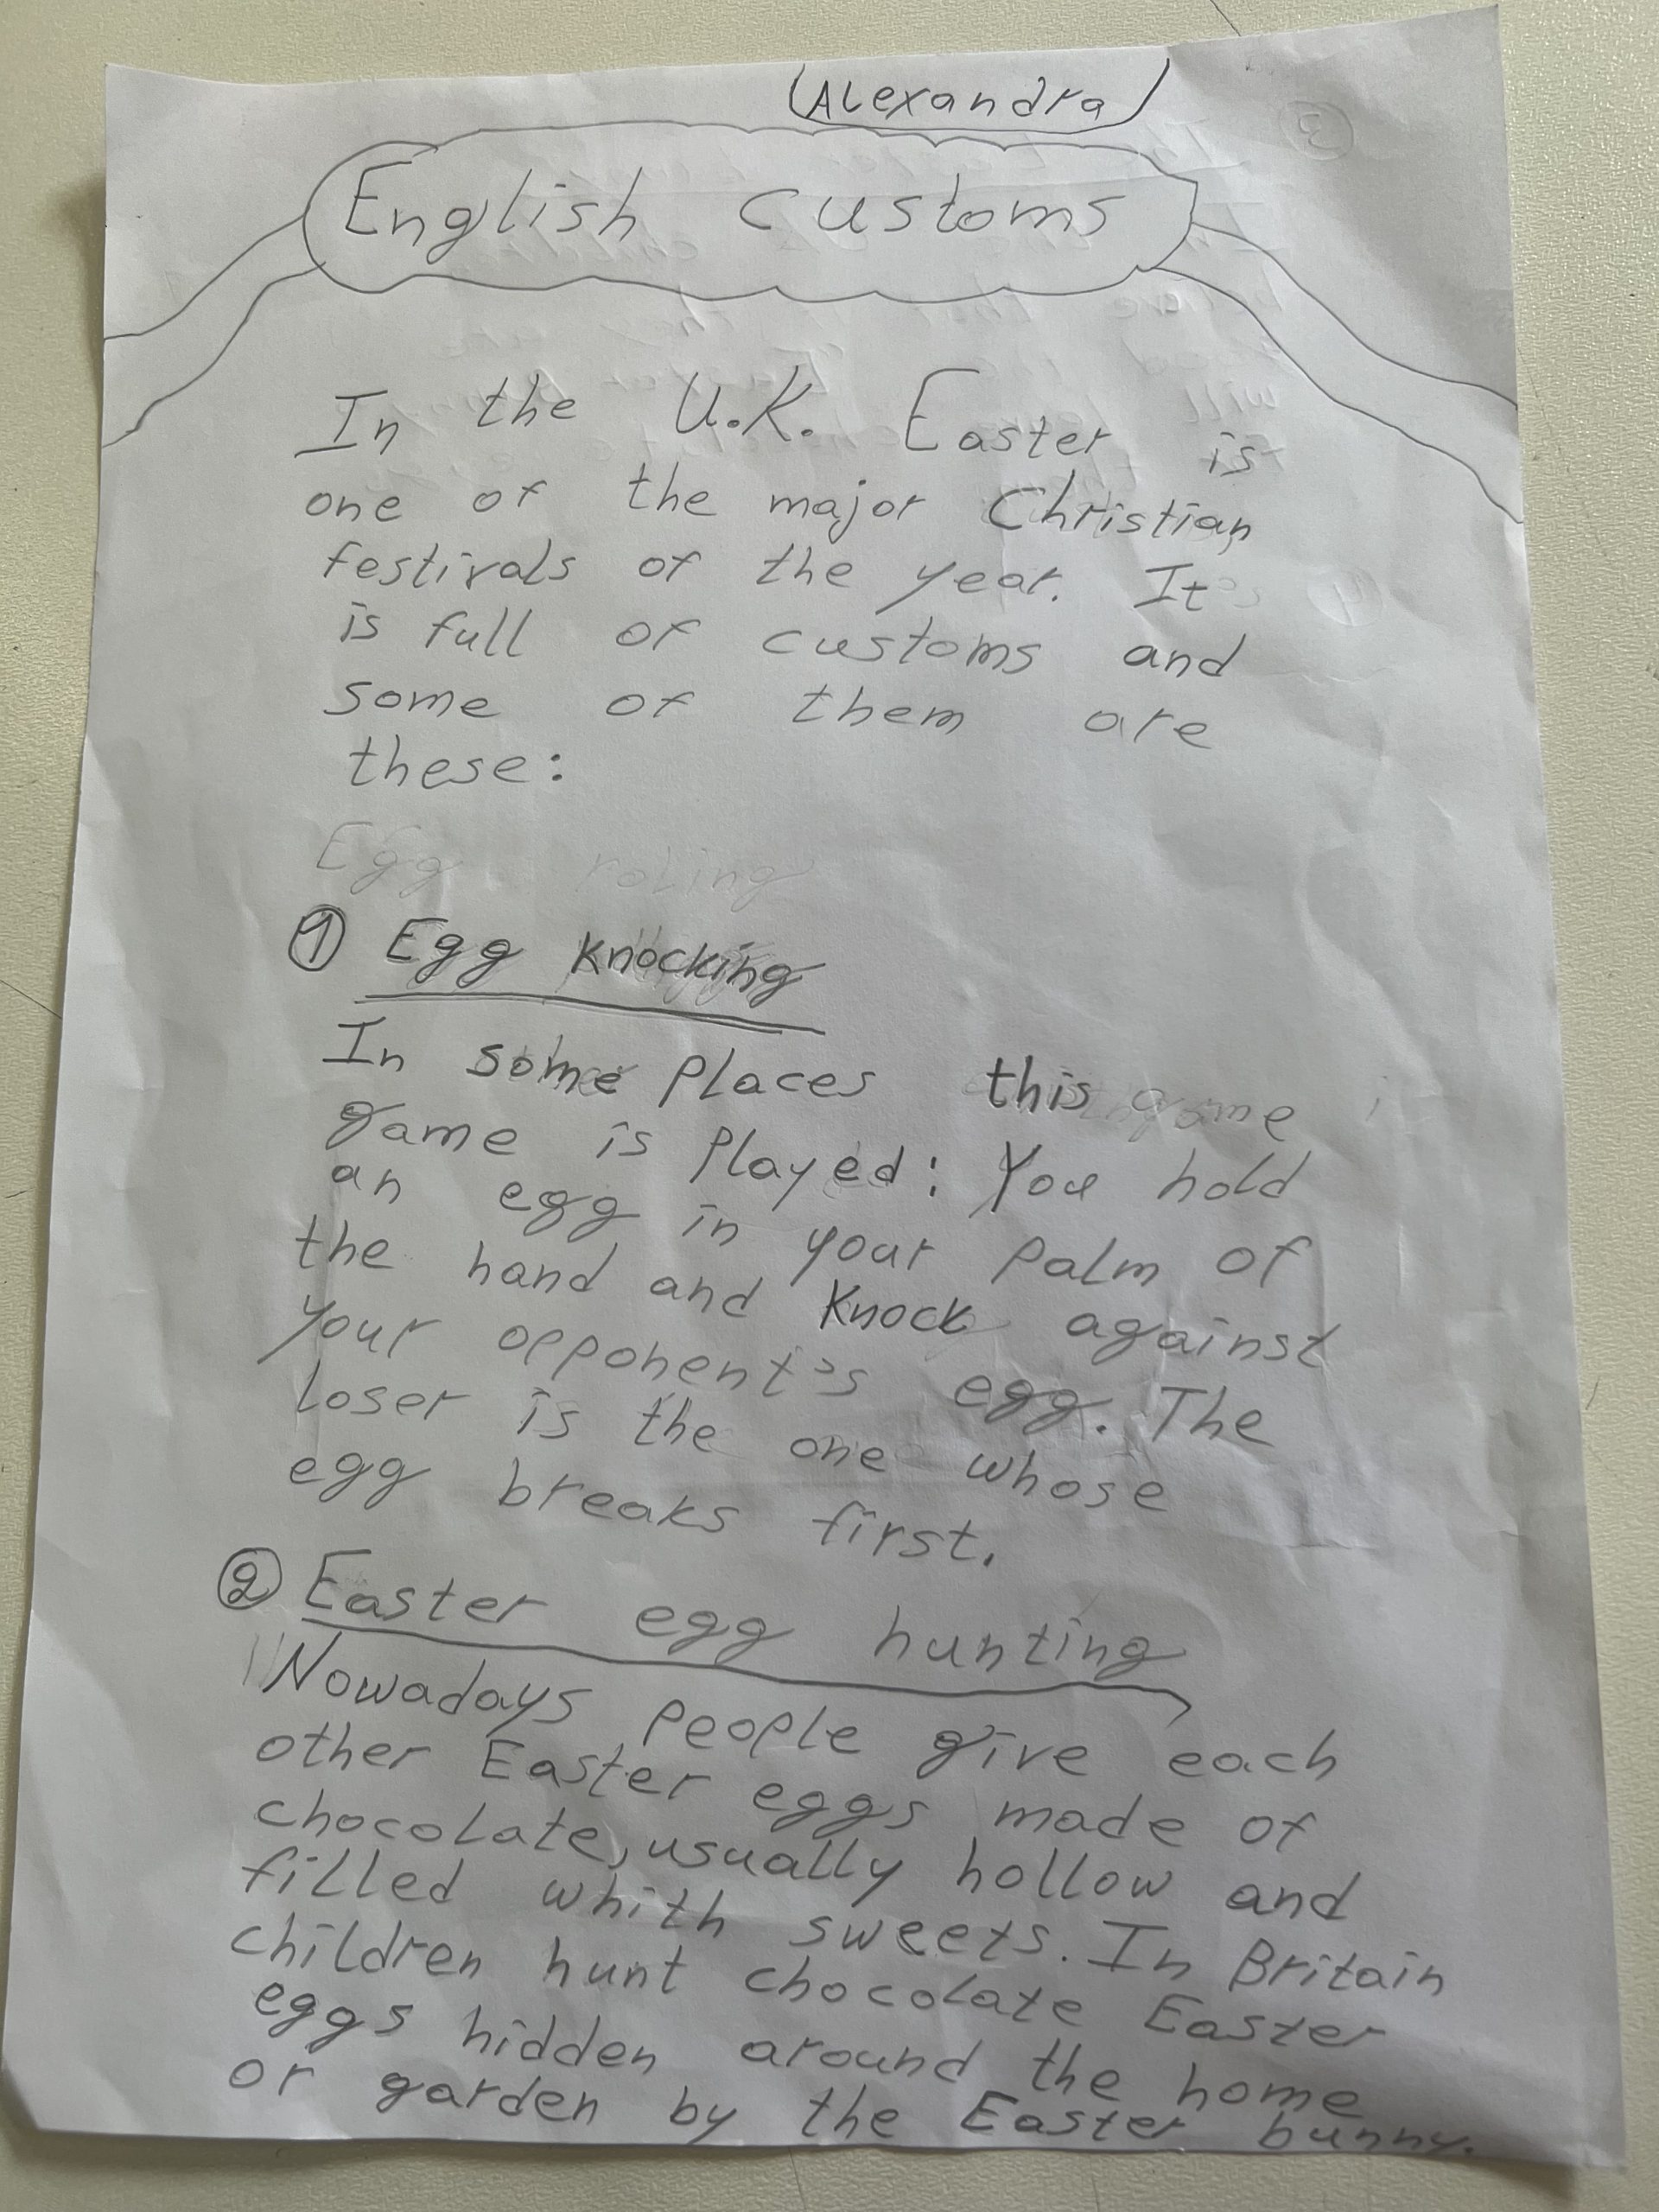 (Alexandra)
English customs
In the U.K. Easter is
one of the major Christian
festivals of the year. It
is full of customs and
some of them are
these:
Egg roling
① Egg knocking
In some places this game
game is played: You hold
an egg in your palm of
the hand and knock against
your opponent's egg. The
loser is the one whose
egg breaks first.
② Easter egg hunting
Nowadays people give each
other Easter eggs made of
chocolate, usually hollow and
filled whith sweets. In Britain
children hunt chocolate Easter
eggs hidden around the home
or garden by the Easter bunny.